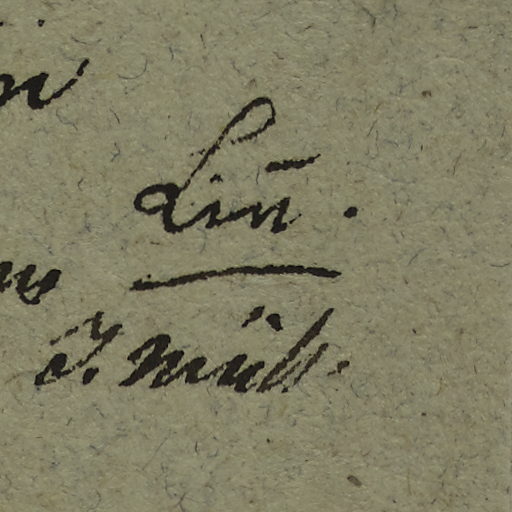 Lin̄.
J. Müll.